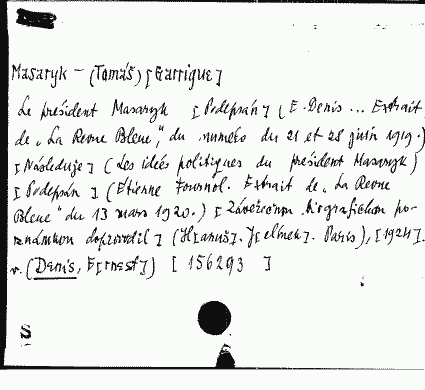 Masaryk - (Tomáš) [Garrigue]
Le président Masaryk [Podepsán] (E. Denis ... Extrait
de „La Revue Bleue", du numéro du 21 et 28 juin 1919.)
[Následuje] (Les idées politiques du président Masaryk)
[Podepsán] (Etienne Fournol. Extrait de „La Revue
Bleue" du 13 mars 1920.) [Závěrečnou biografickou po-
známkou doprovodil] (H[anuš]. J[elínek]. Paris), [1924].
v. (Denis, E[rnest]) [156293]
S